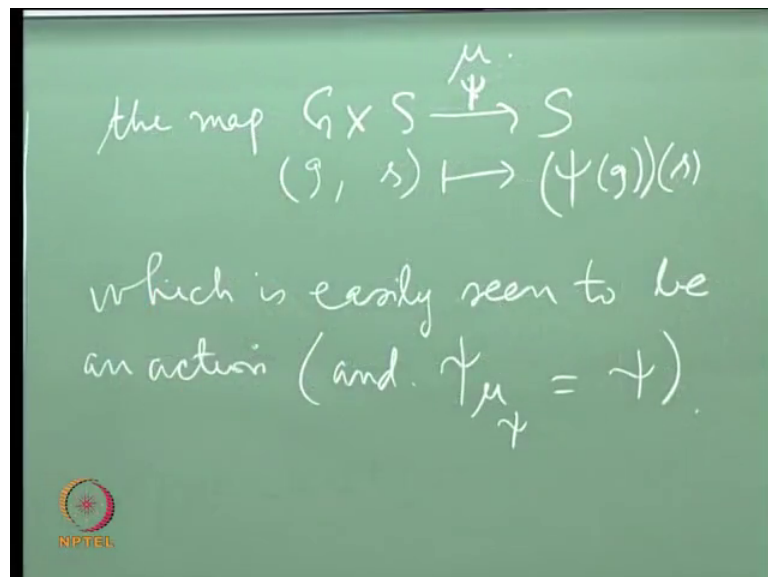 μ.
ψ
the map G x S ⟶ S
(g, s) ⟼ (ψ(g))(s)
which is easily seen to be
an action (and. ψ_μ_ψ = ψ).
NPTEL